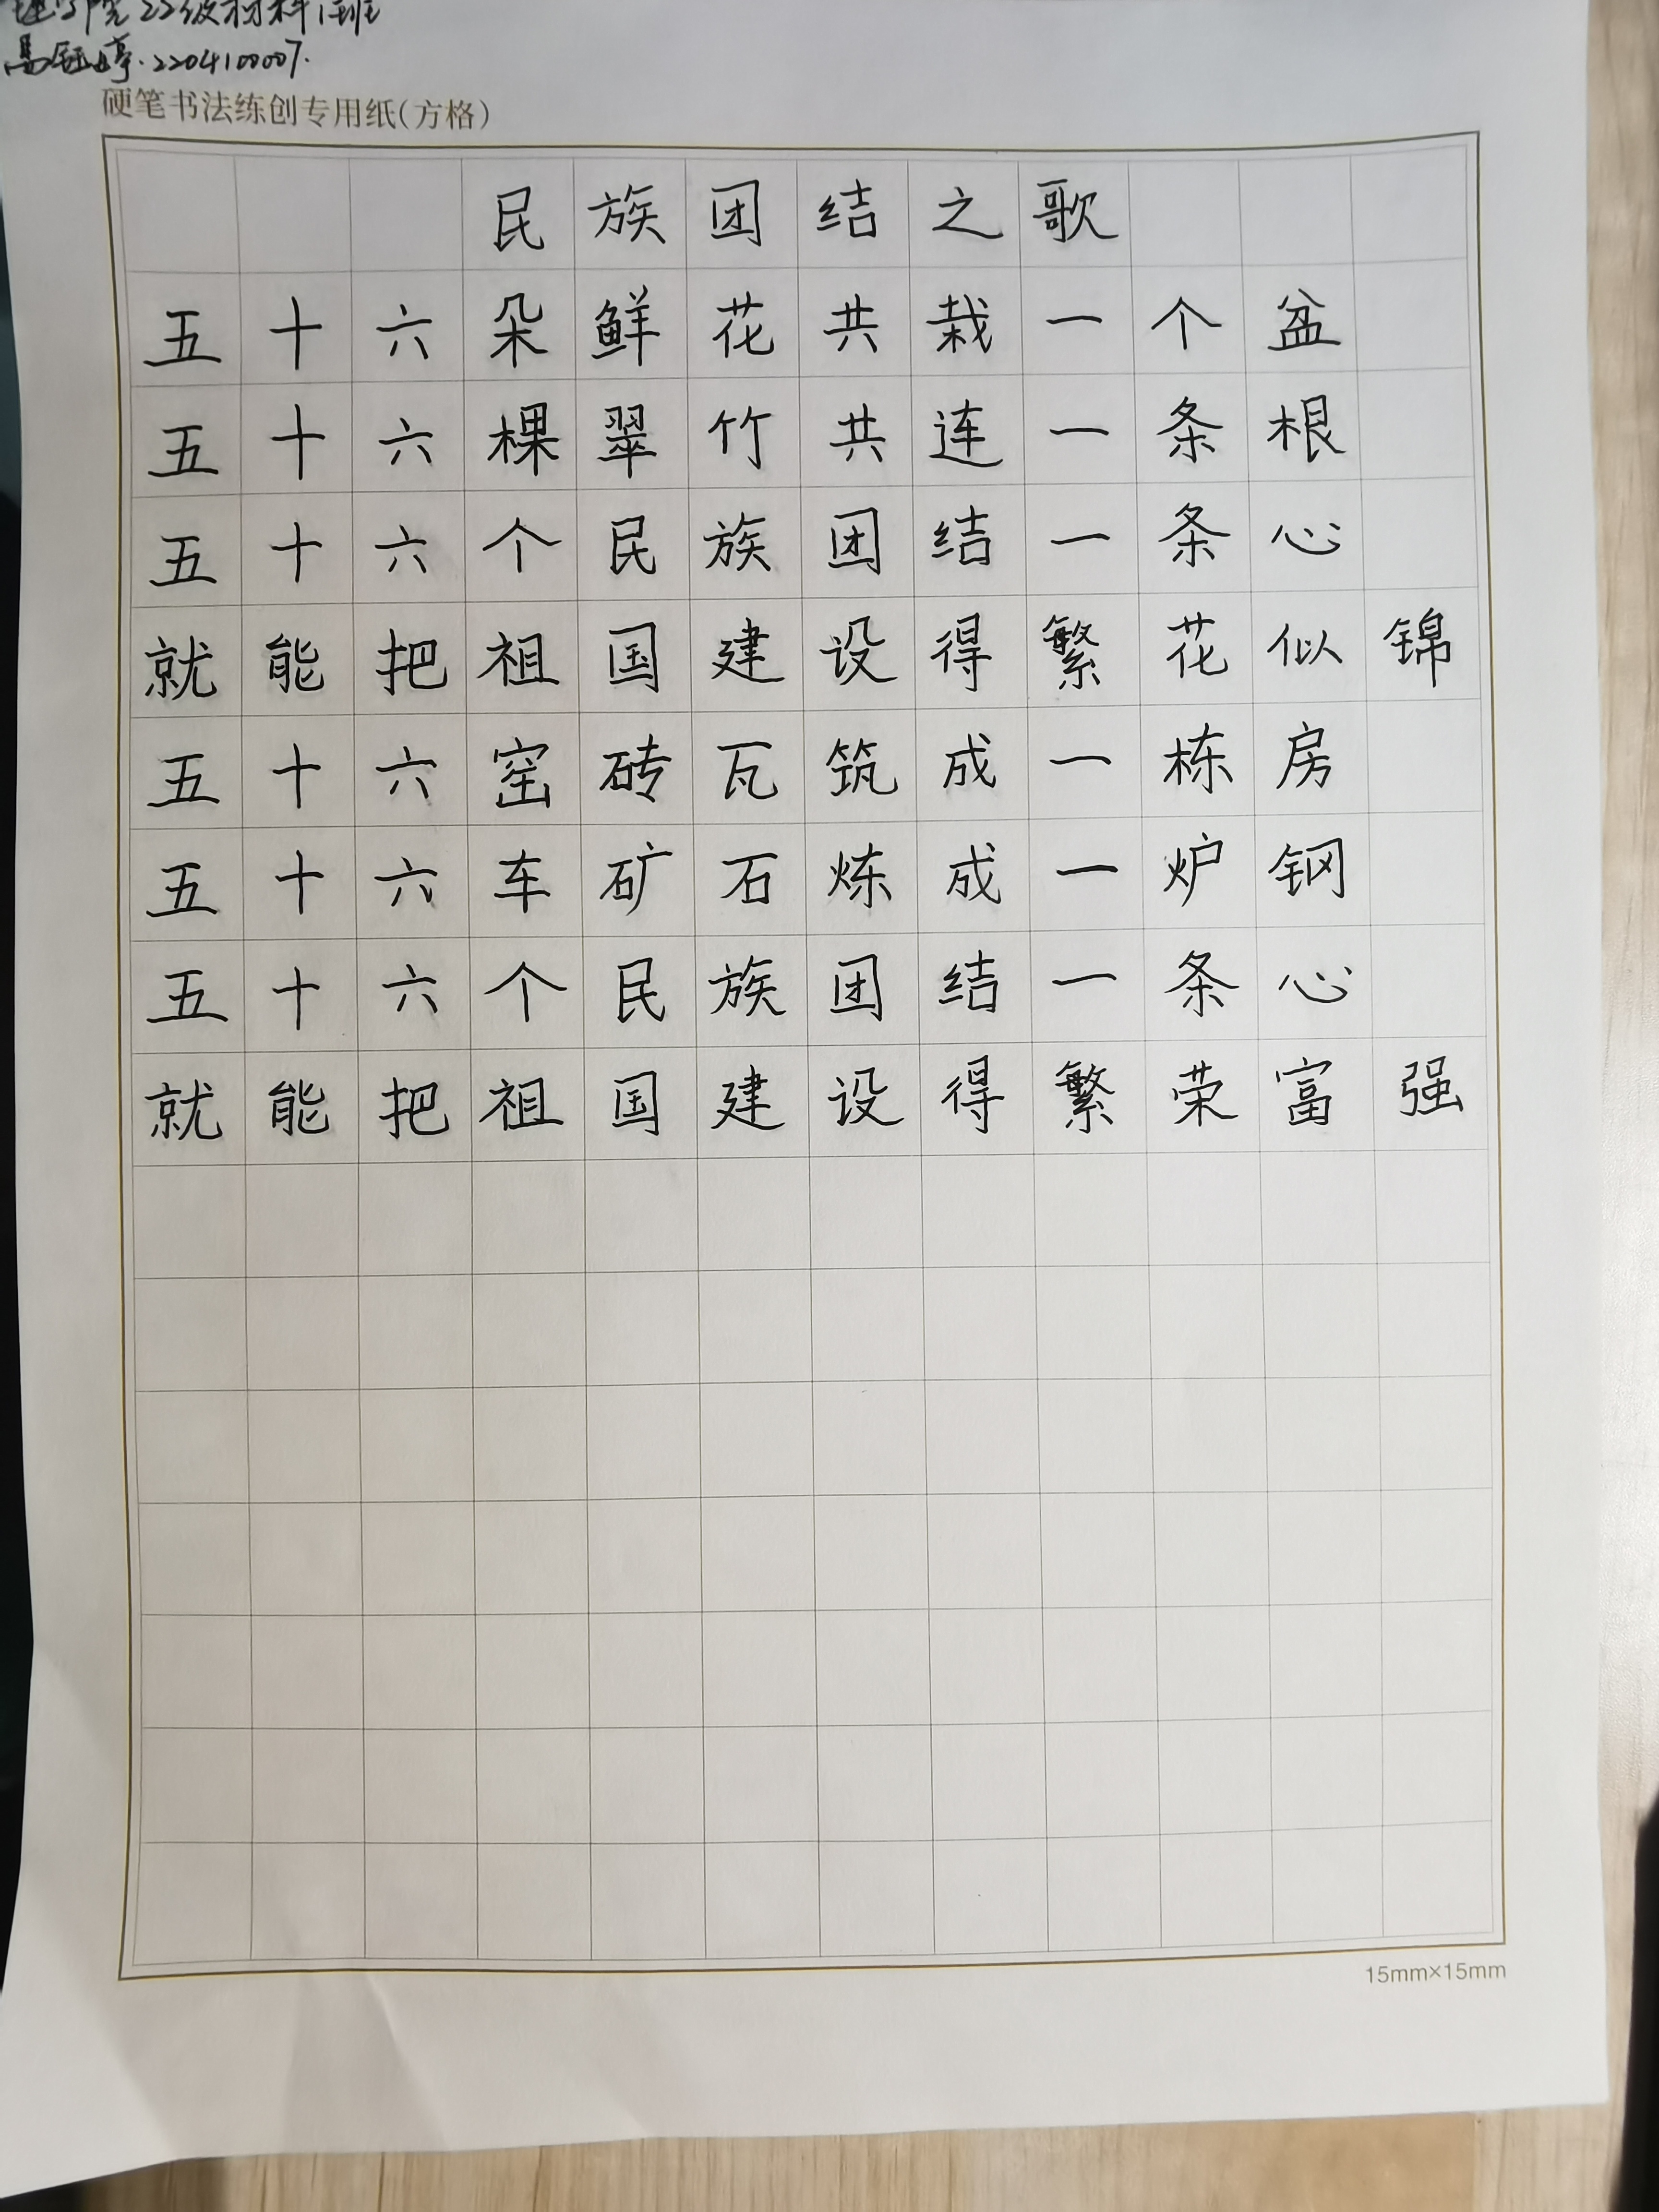 理学院22级材料1班
马钰婷.220410007.
硬笔书法练创专用纸(方格)
民族团结之歌
五十六朵鲜花共栽一个盆
五十六棵翠竹共连一条根
五十六个民族团结一条心
就能把祖国建设得繁花似锦
五十六窑砖瓦筑成一栋房
五十六车矿石炼成一炉钢
五十六个民族团结一条心
就能把祖国建设得繁荣富强
15mm×15mm